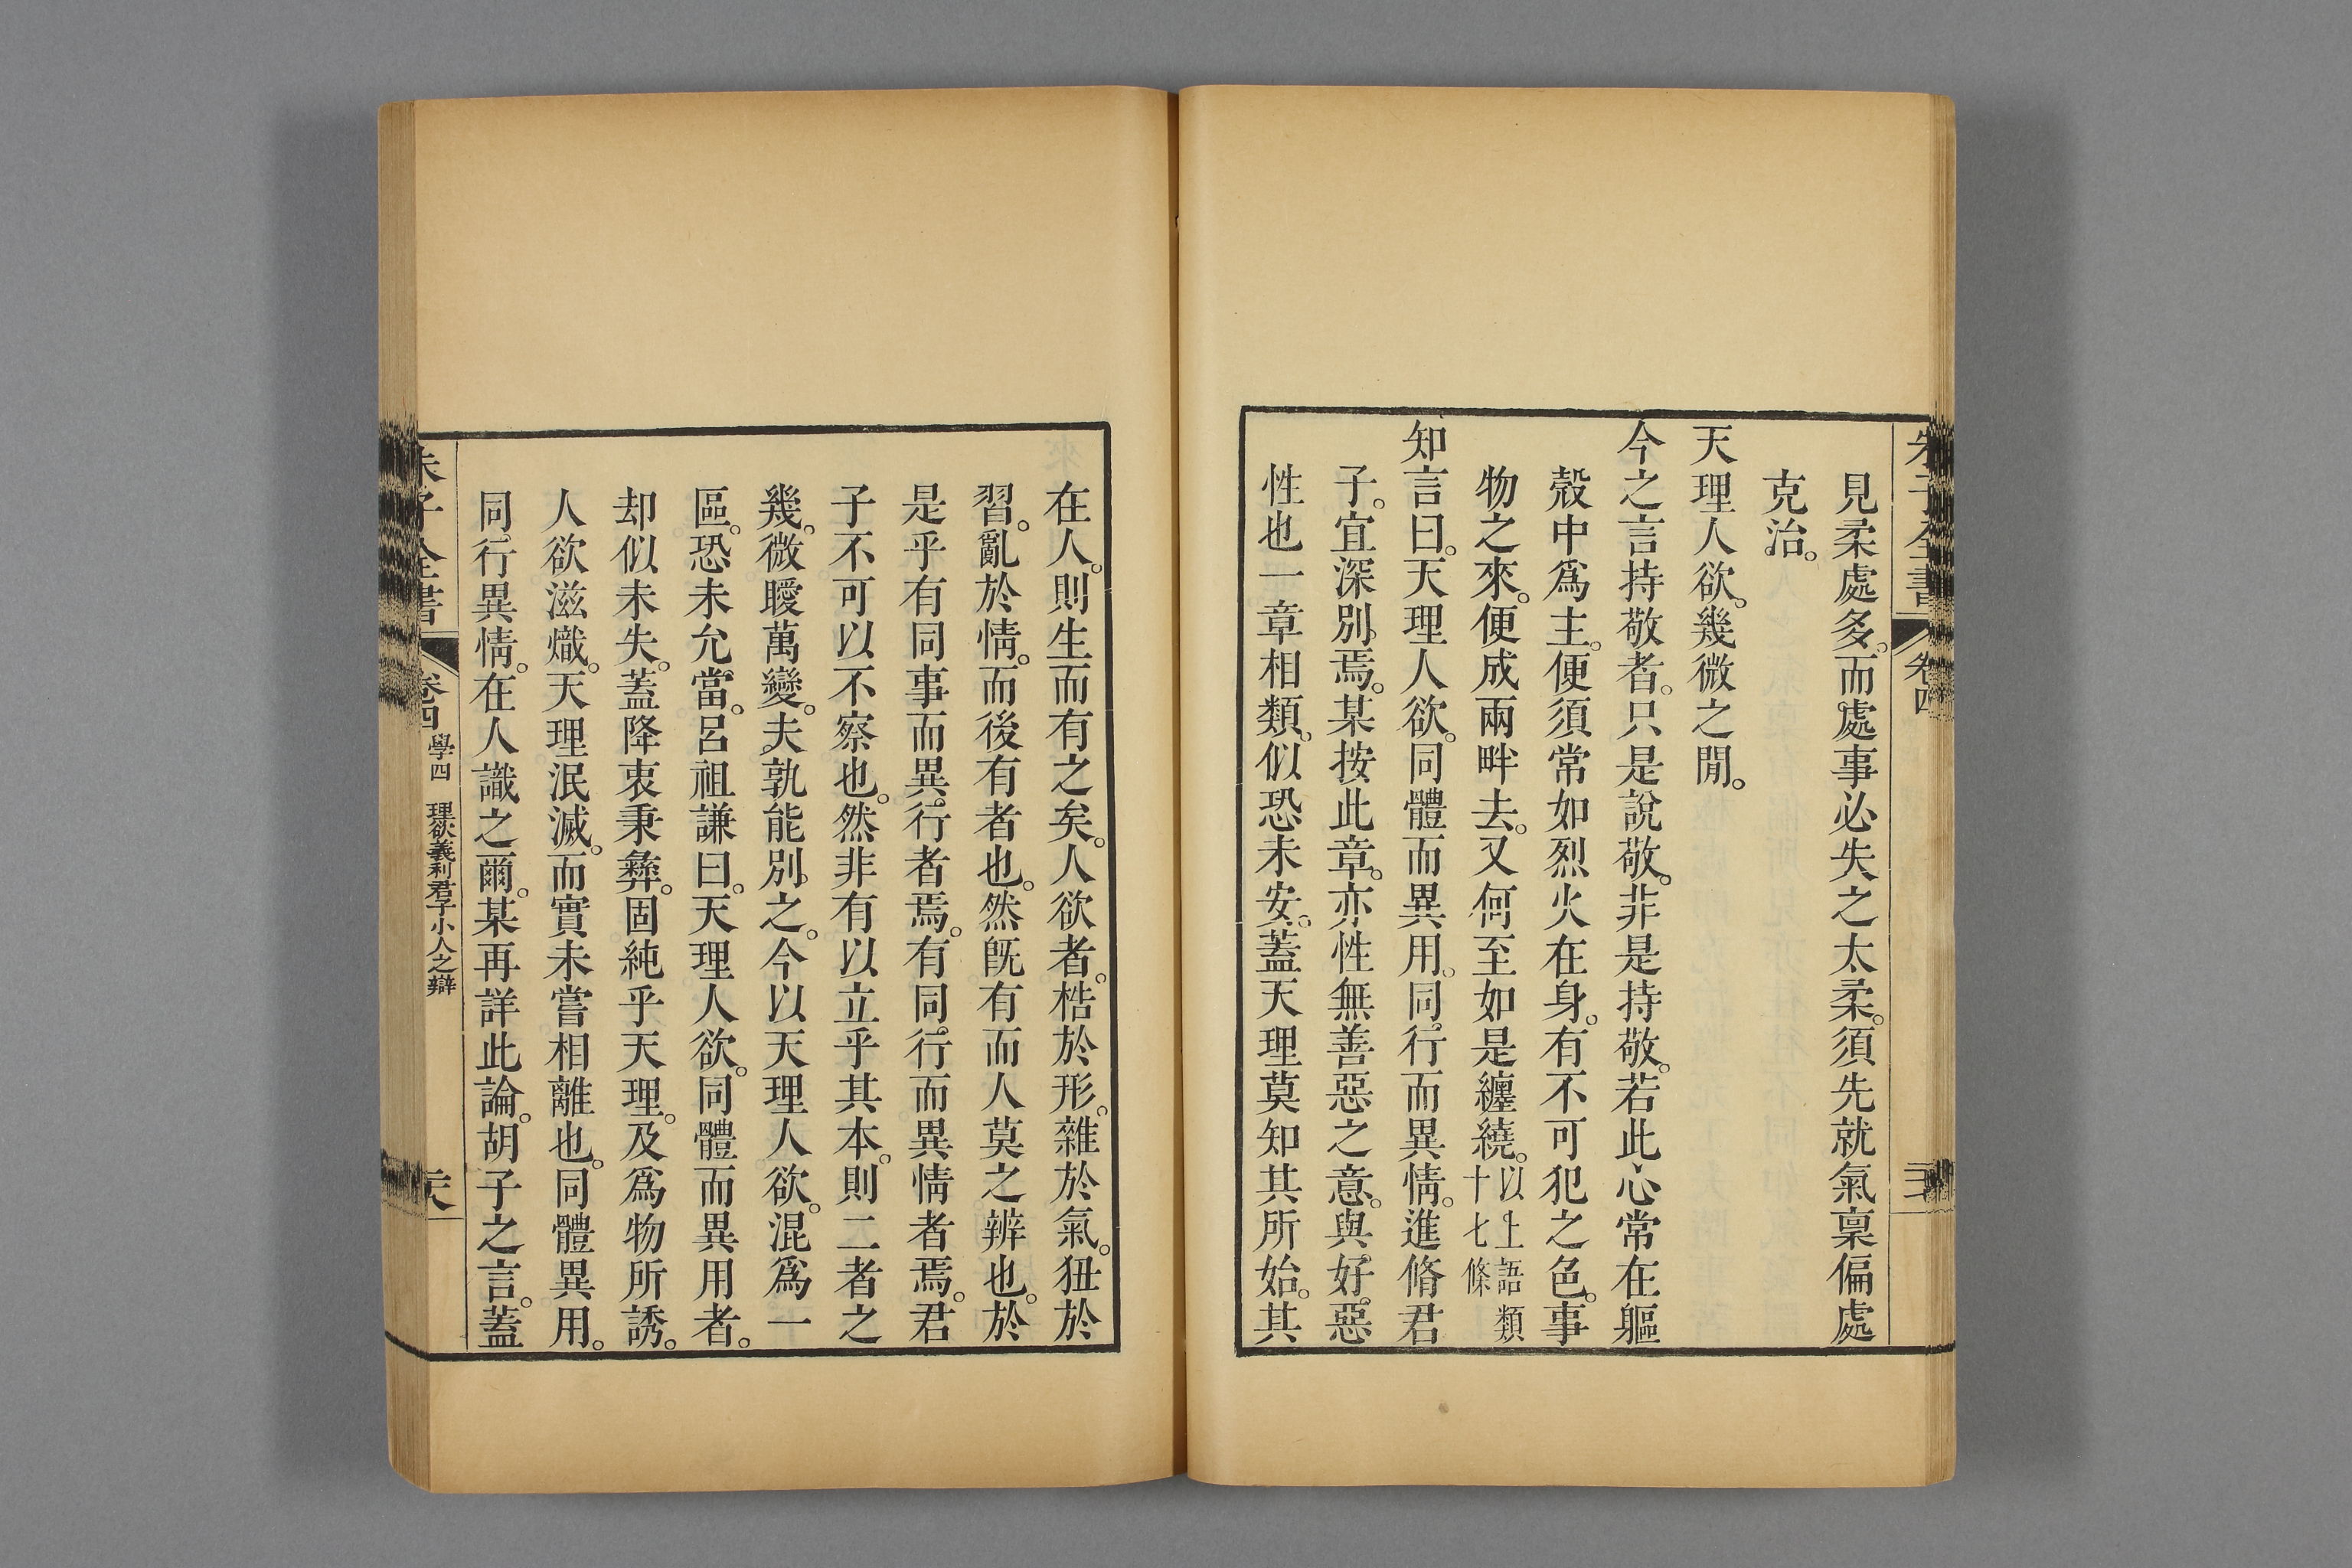 朱子全書 卷四
見柔處多。而處事必失之太柔。須先就氣稟偏處
克治。
天理人欲。幾微之閒。
今之言持敬者。只是說敬。非是持敬。若此心常在軀
殼中爲主。便須常如烈火在身。有不可犯之色。事
物之來。便成兩畔去。又何至如是纏繞。以上語類十七條
知言曰。天理人欲。同體而異用。同行而異情。進脩君
子。宜深別焉。某按此章。亦性無善惡之意。與好惡
性也一章相類。似恐未安。蓋天理莫知其所始。其
在人。則生而有之矣。人欲者。梏於形。雜於氣。狃於
習。亂於情。而後有者也。然旣有而人莫之辨也。於
是乎有同事而異行者焉。有同行而異情者焉。君
子不可以不察也。然非有以立乎其本。則二者之
幾。微曖萬變。夫孰能別之。今以天理人欲。混爲一
區。恐未允當。呂祖謙曰。天理人欲。同體而異用者。
却似未失。蓋降衷秉彝。固純乎天理。及爲物所誘。
人欲滋熾。天理泯滅。而實未嘗相離也。同體異用。
同行異情。在人識之爾。某再詳此論。胡子之言。蓋
朱子全書 卷四 學四 理欲義利君子小人之辯